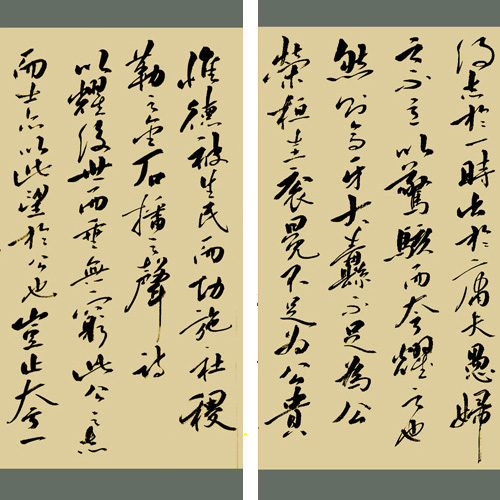 得志於一時出於庸夫愚婦
之不意以驚駭而夸耀之也
然則高牙大纛不足為公
榮桓圭袞冕不足為公貴
惟德被生民而功施社稷
勒之金石播之聲詩
以耀後世而垂無窮此公之志
而士亦以此望於公也豈止夸一